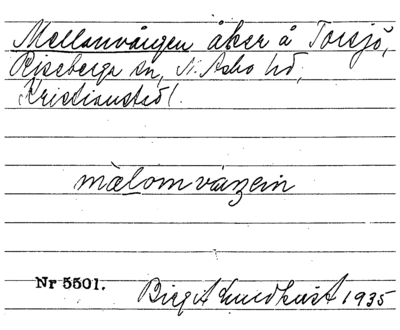 Mellanvången åker å Torsjö,
Riseberga sn, N. Åsbo hd,
Kristianstad l.
mälomváŋein
Nr 5501.
Birgit Lundkvist 1935